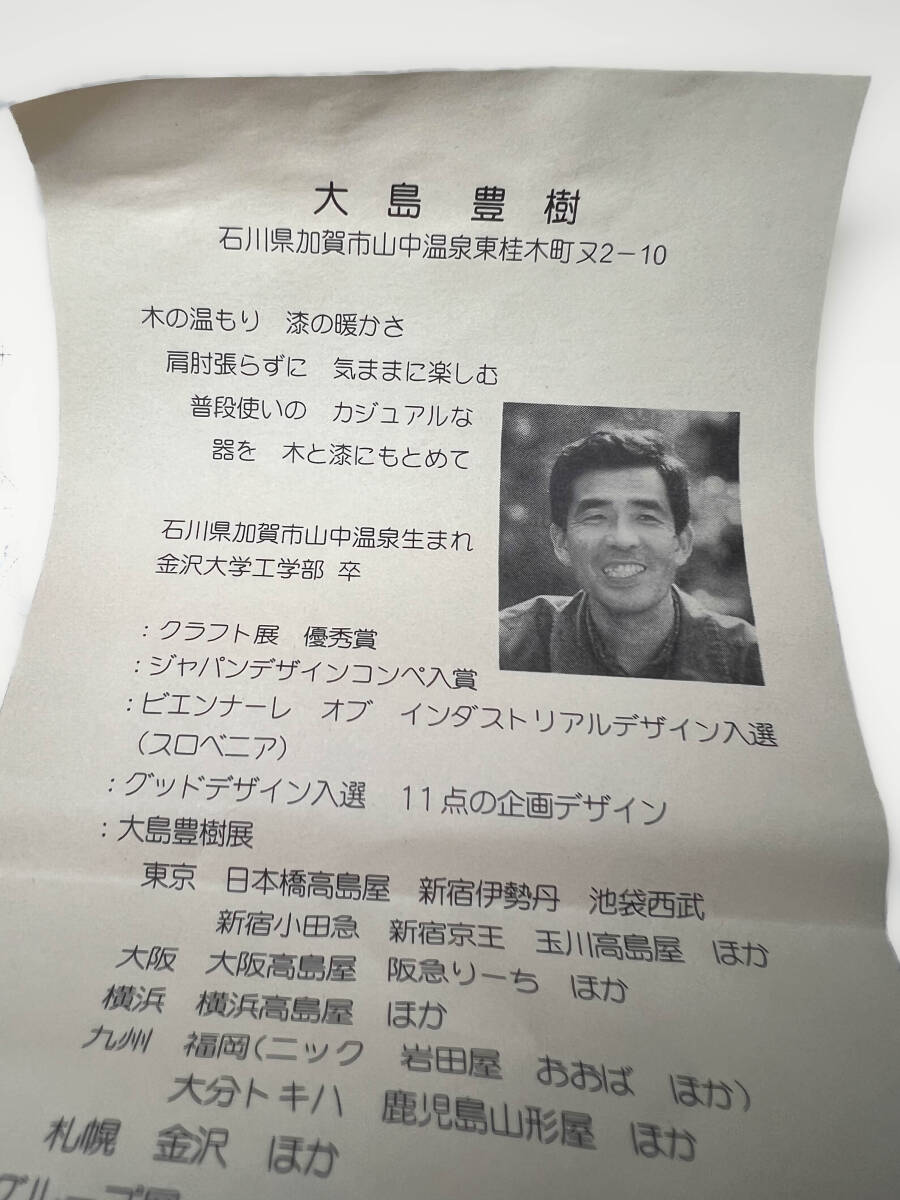 大島豊樹
石川県加賀市山中温泉東桂木町ヌ2-10
木の温もり 漆の暖かさ
肩肘張らずに 気ままに楽しむ
普段使いの カジュアルな
器を 木と漆にもとめて
石川県加賀市山中温泉生まれ
金沢大学工学部 卒
:クラフト展 優秀賞
:ジャパンデザインコンペ入賞
:ビエンナーレ オブ インダストリアルデザイン入選
(スロベニア)
:グッドデザイン入選 11点の企画デザイン
:大島豊樹展
東京 日本橋高島屋 新宿伊勢丹 池袋西武
新宿小田急 新宿京王 玉川高島屋 ほか
大阪 大阪高島屋 阪急りーち ほか
横浜 横浜高島屋 ほか
九州 福岡(ニック 岩田屋 おおば ほか)
大分トキハ 鹿児島山形屋 ほか
札幌 金沢 ほか
グループ展